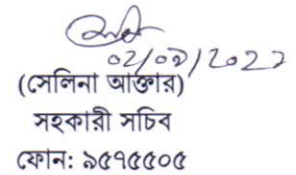 02/02/2022
(সেলিনা আক্তার)
সহকারী সচিব
ফোন: ৯৫৭৫৫০৫